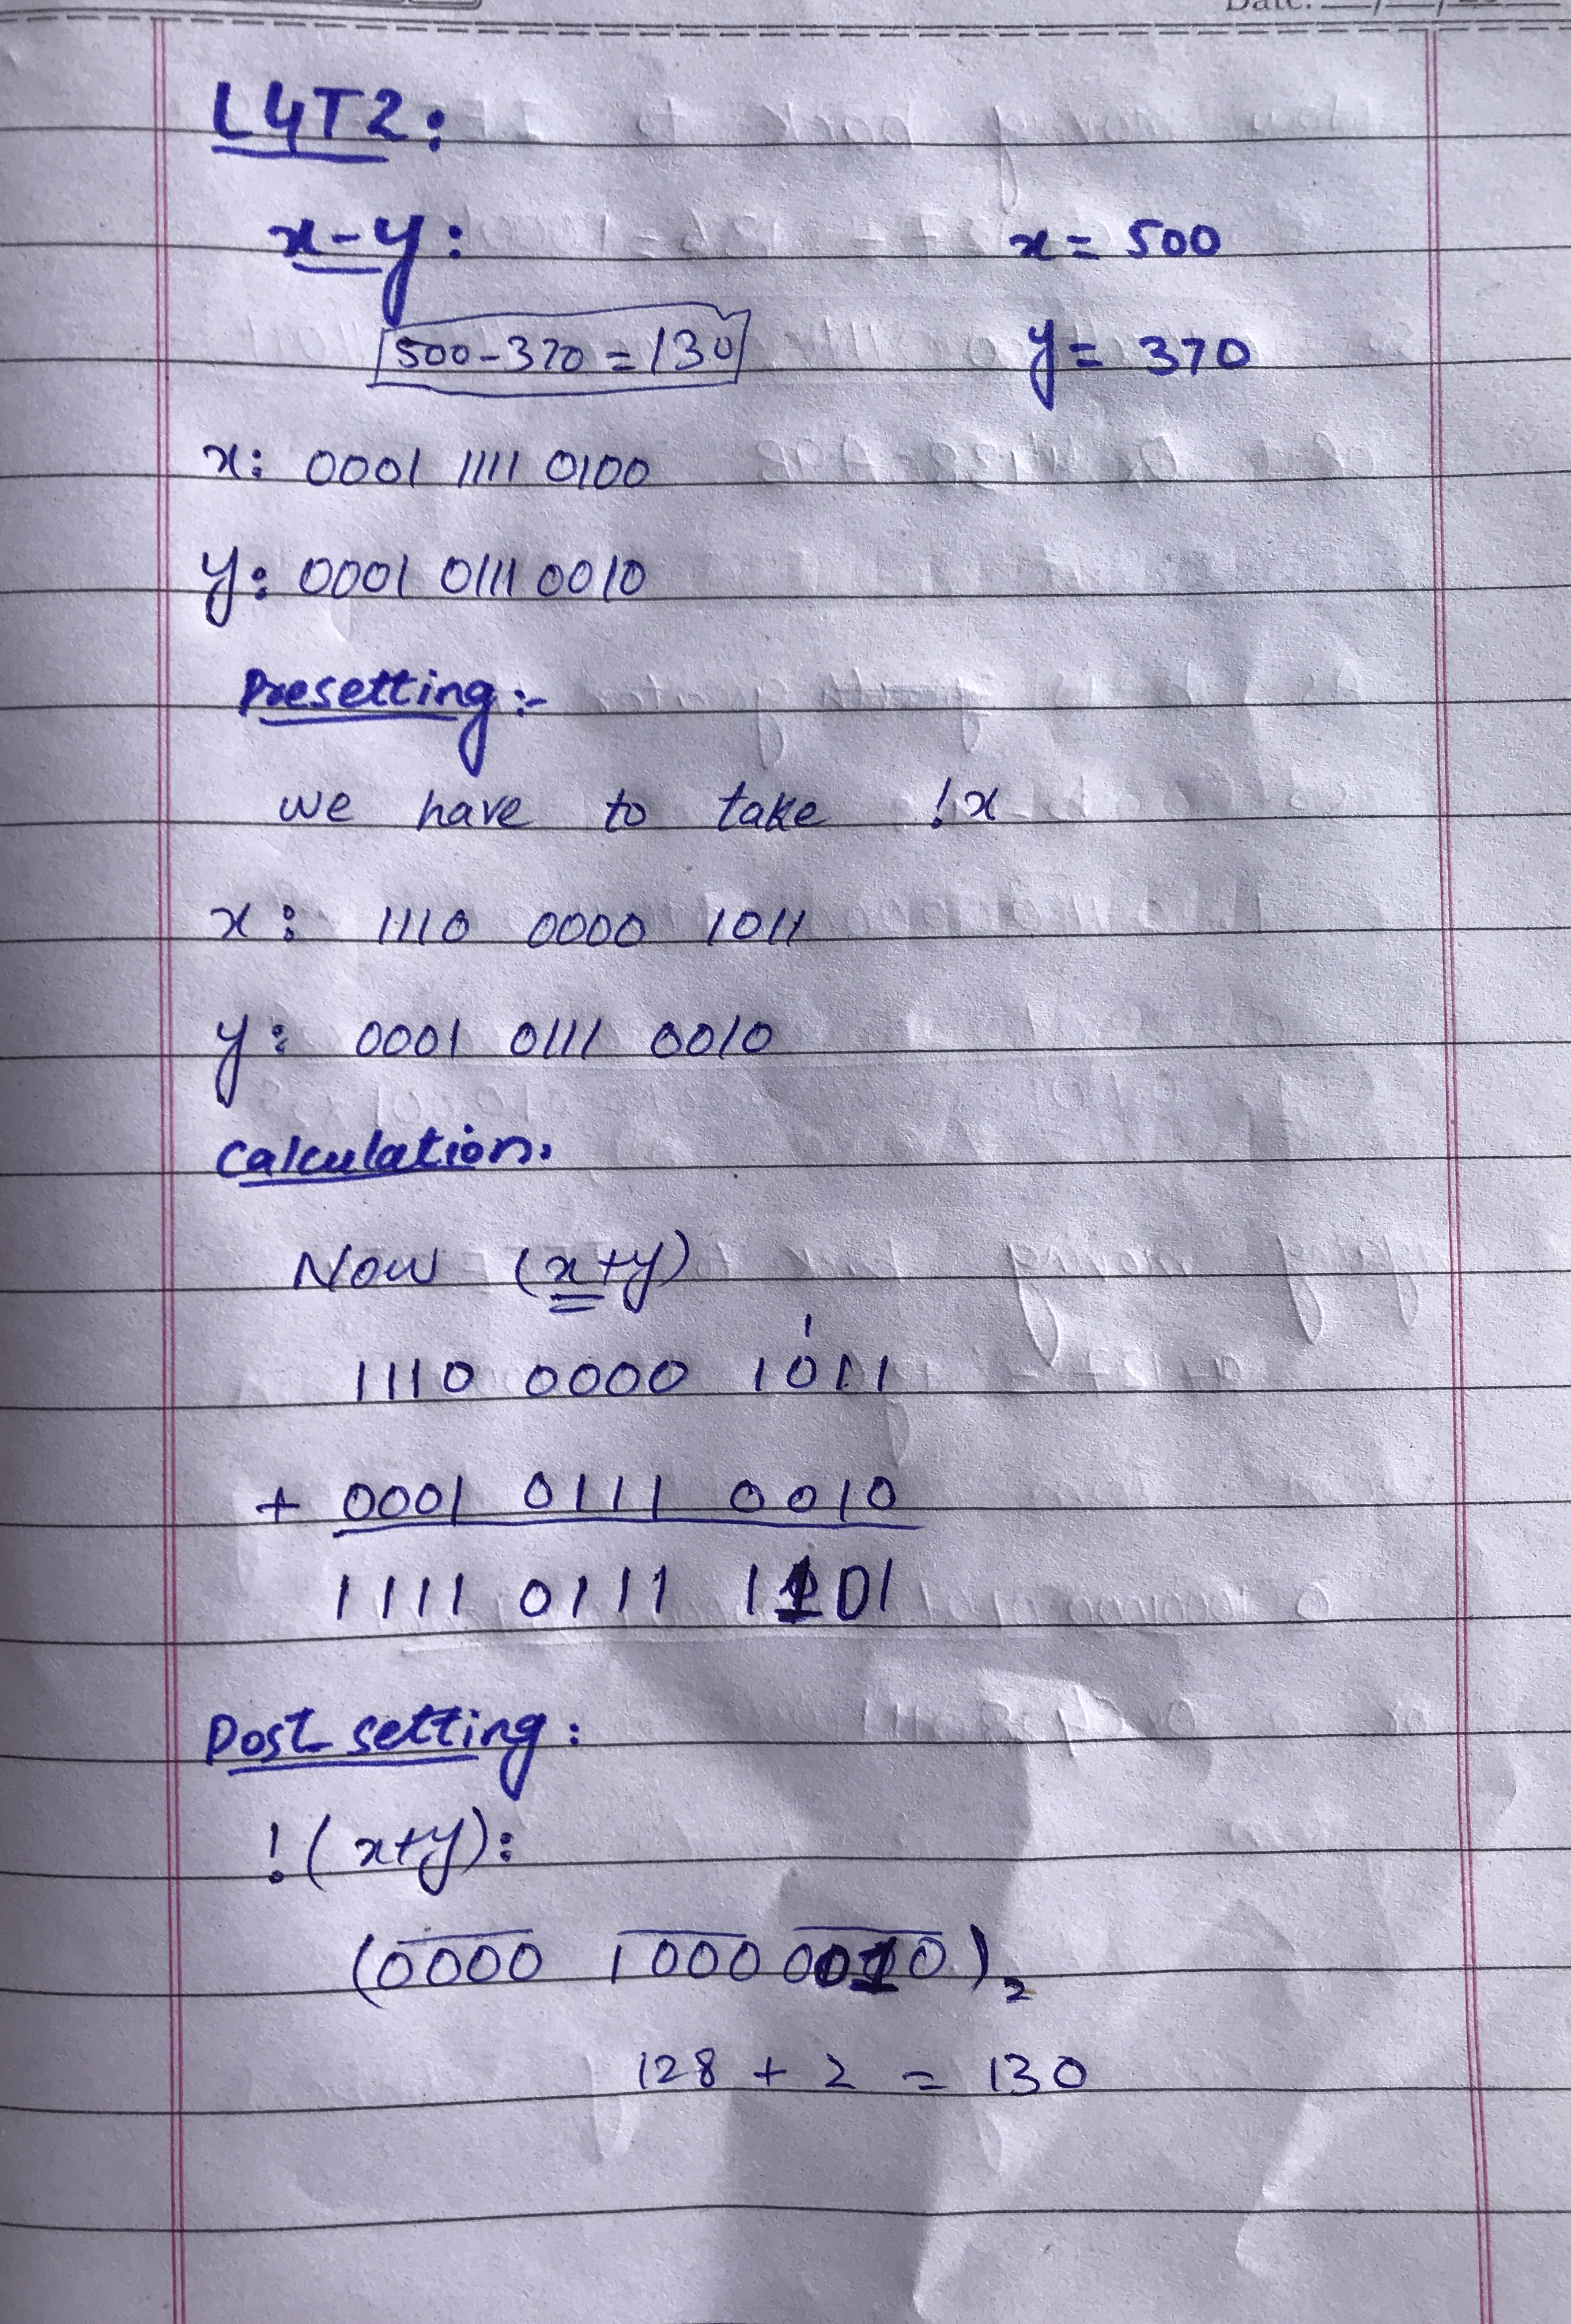 Date: __/__/20__
L4T2:
x-y: x = 500
500-370 = 130 y = 370
x: 0001 1111 0100
y: 0001 0111 0010
Presetting:-
we have to take !x
x: 1110 0000 1011
y: 0001 0111 0010
Calculation.
Now (x+y)
1
1110 0000 1011
+ 0001 0111 0010
1111 0111 1101
Post setting:
!(x+y):
(0000 1000 0010)2
128 + 2 = 130